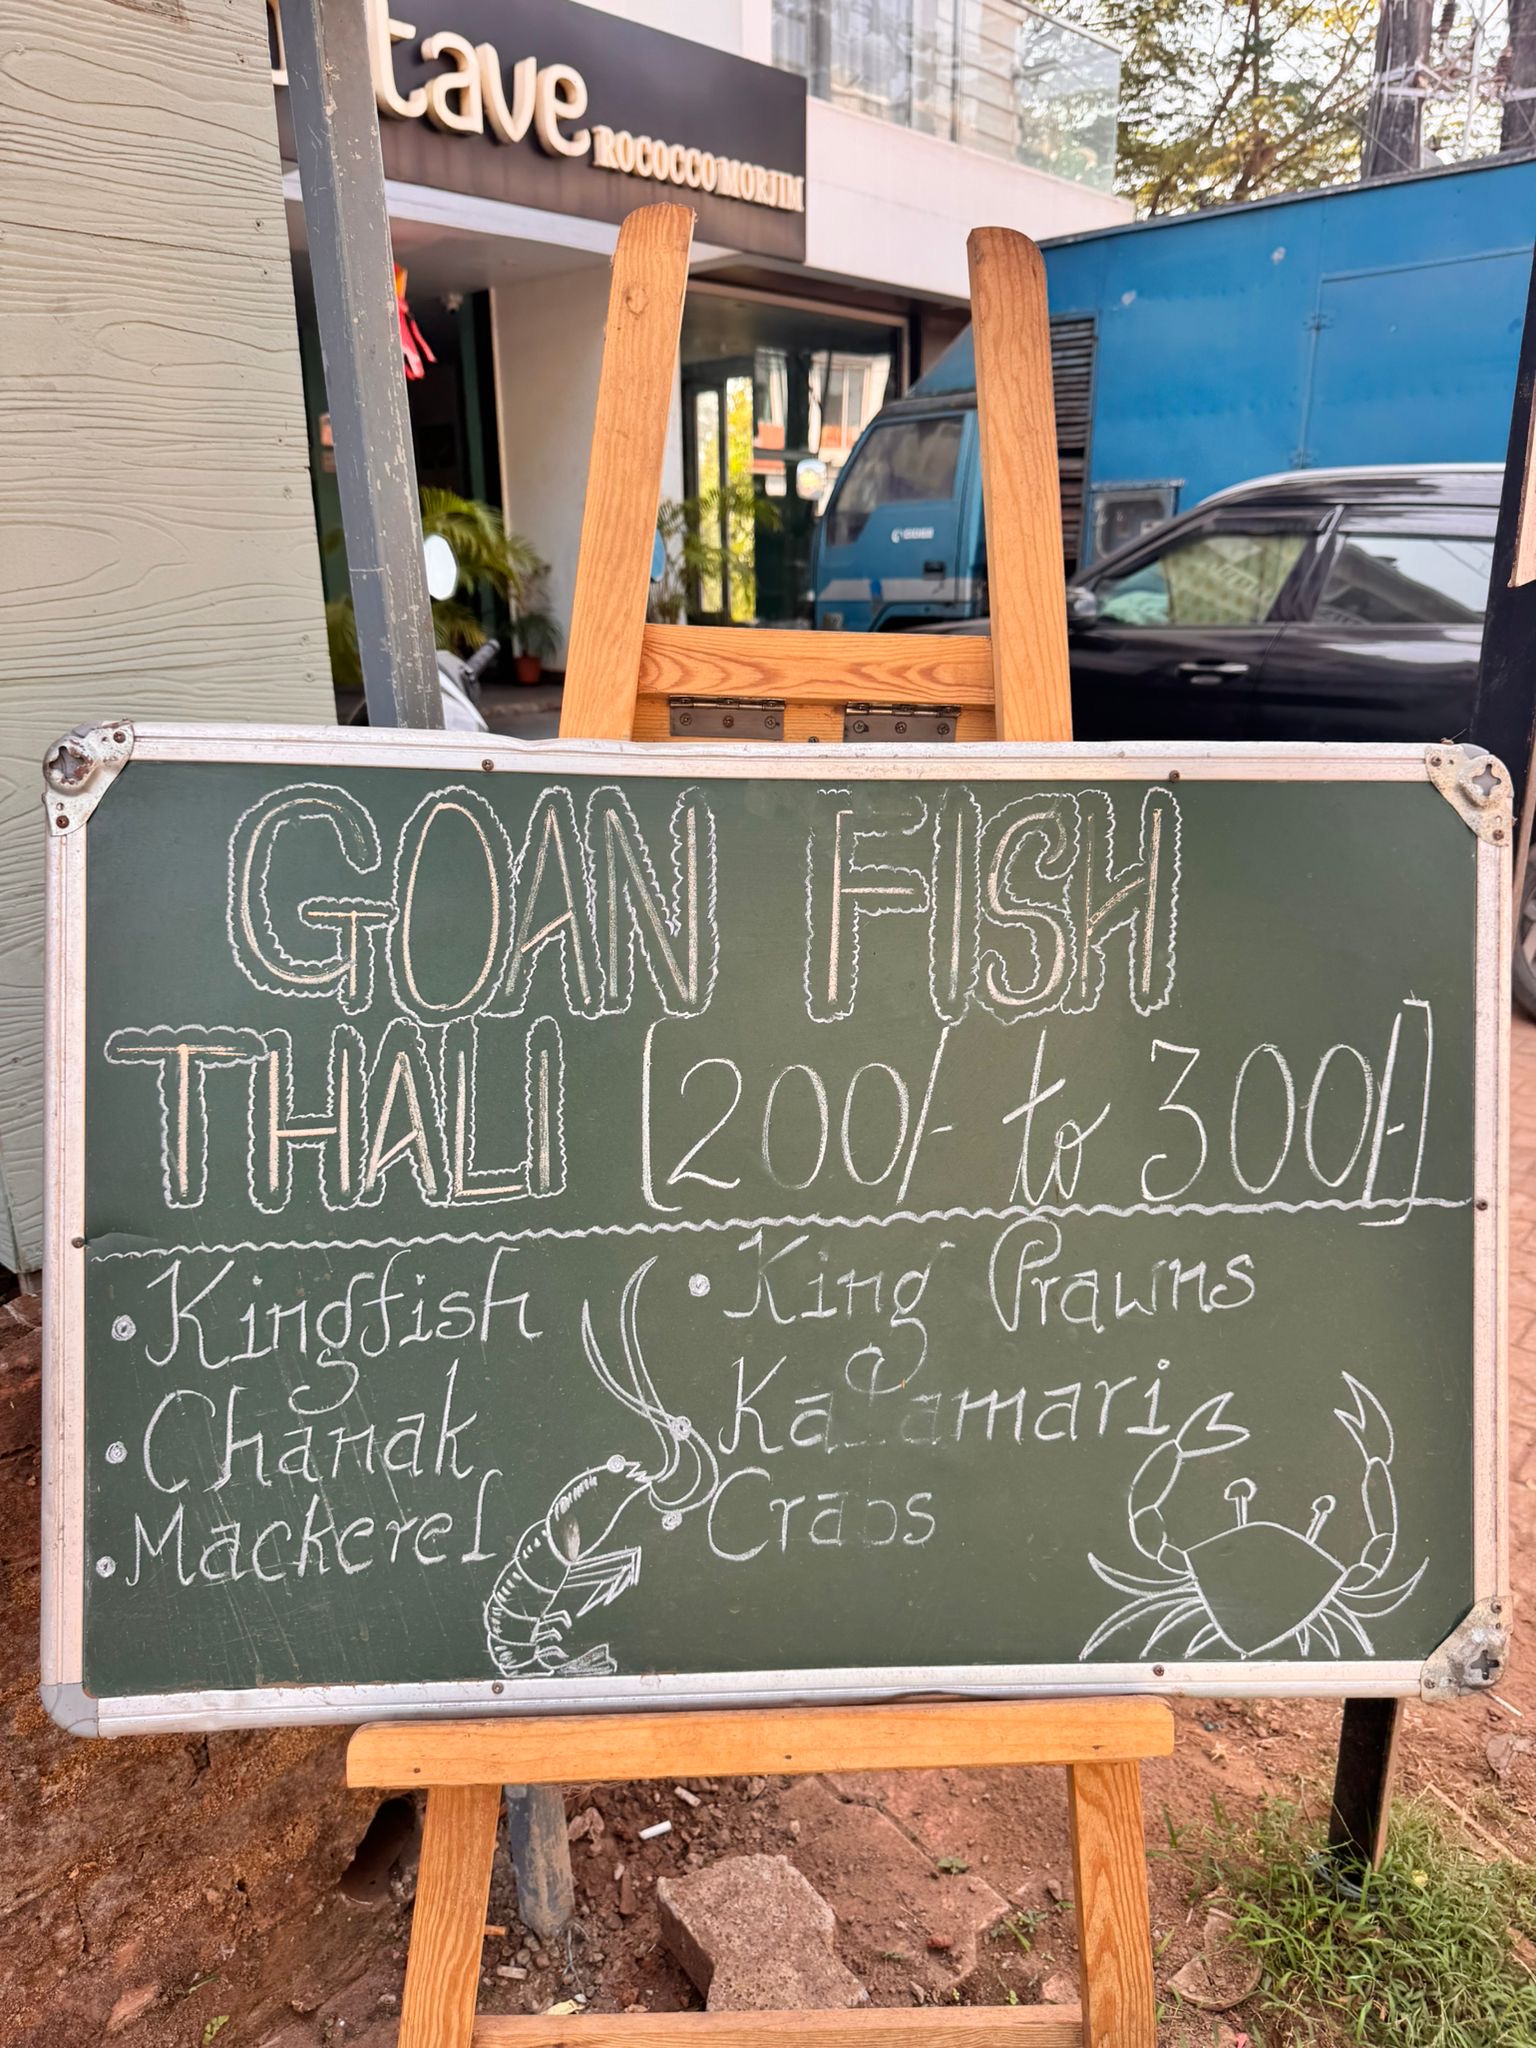 tave
ROCOCCO MORJIM
GOAN FISH
THALI [200/- to 300/-]
• Kingfish
• Chanak
• Mackerel
• King Prawns
• Kalamari
• Crabs